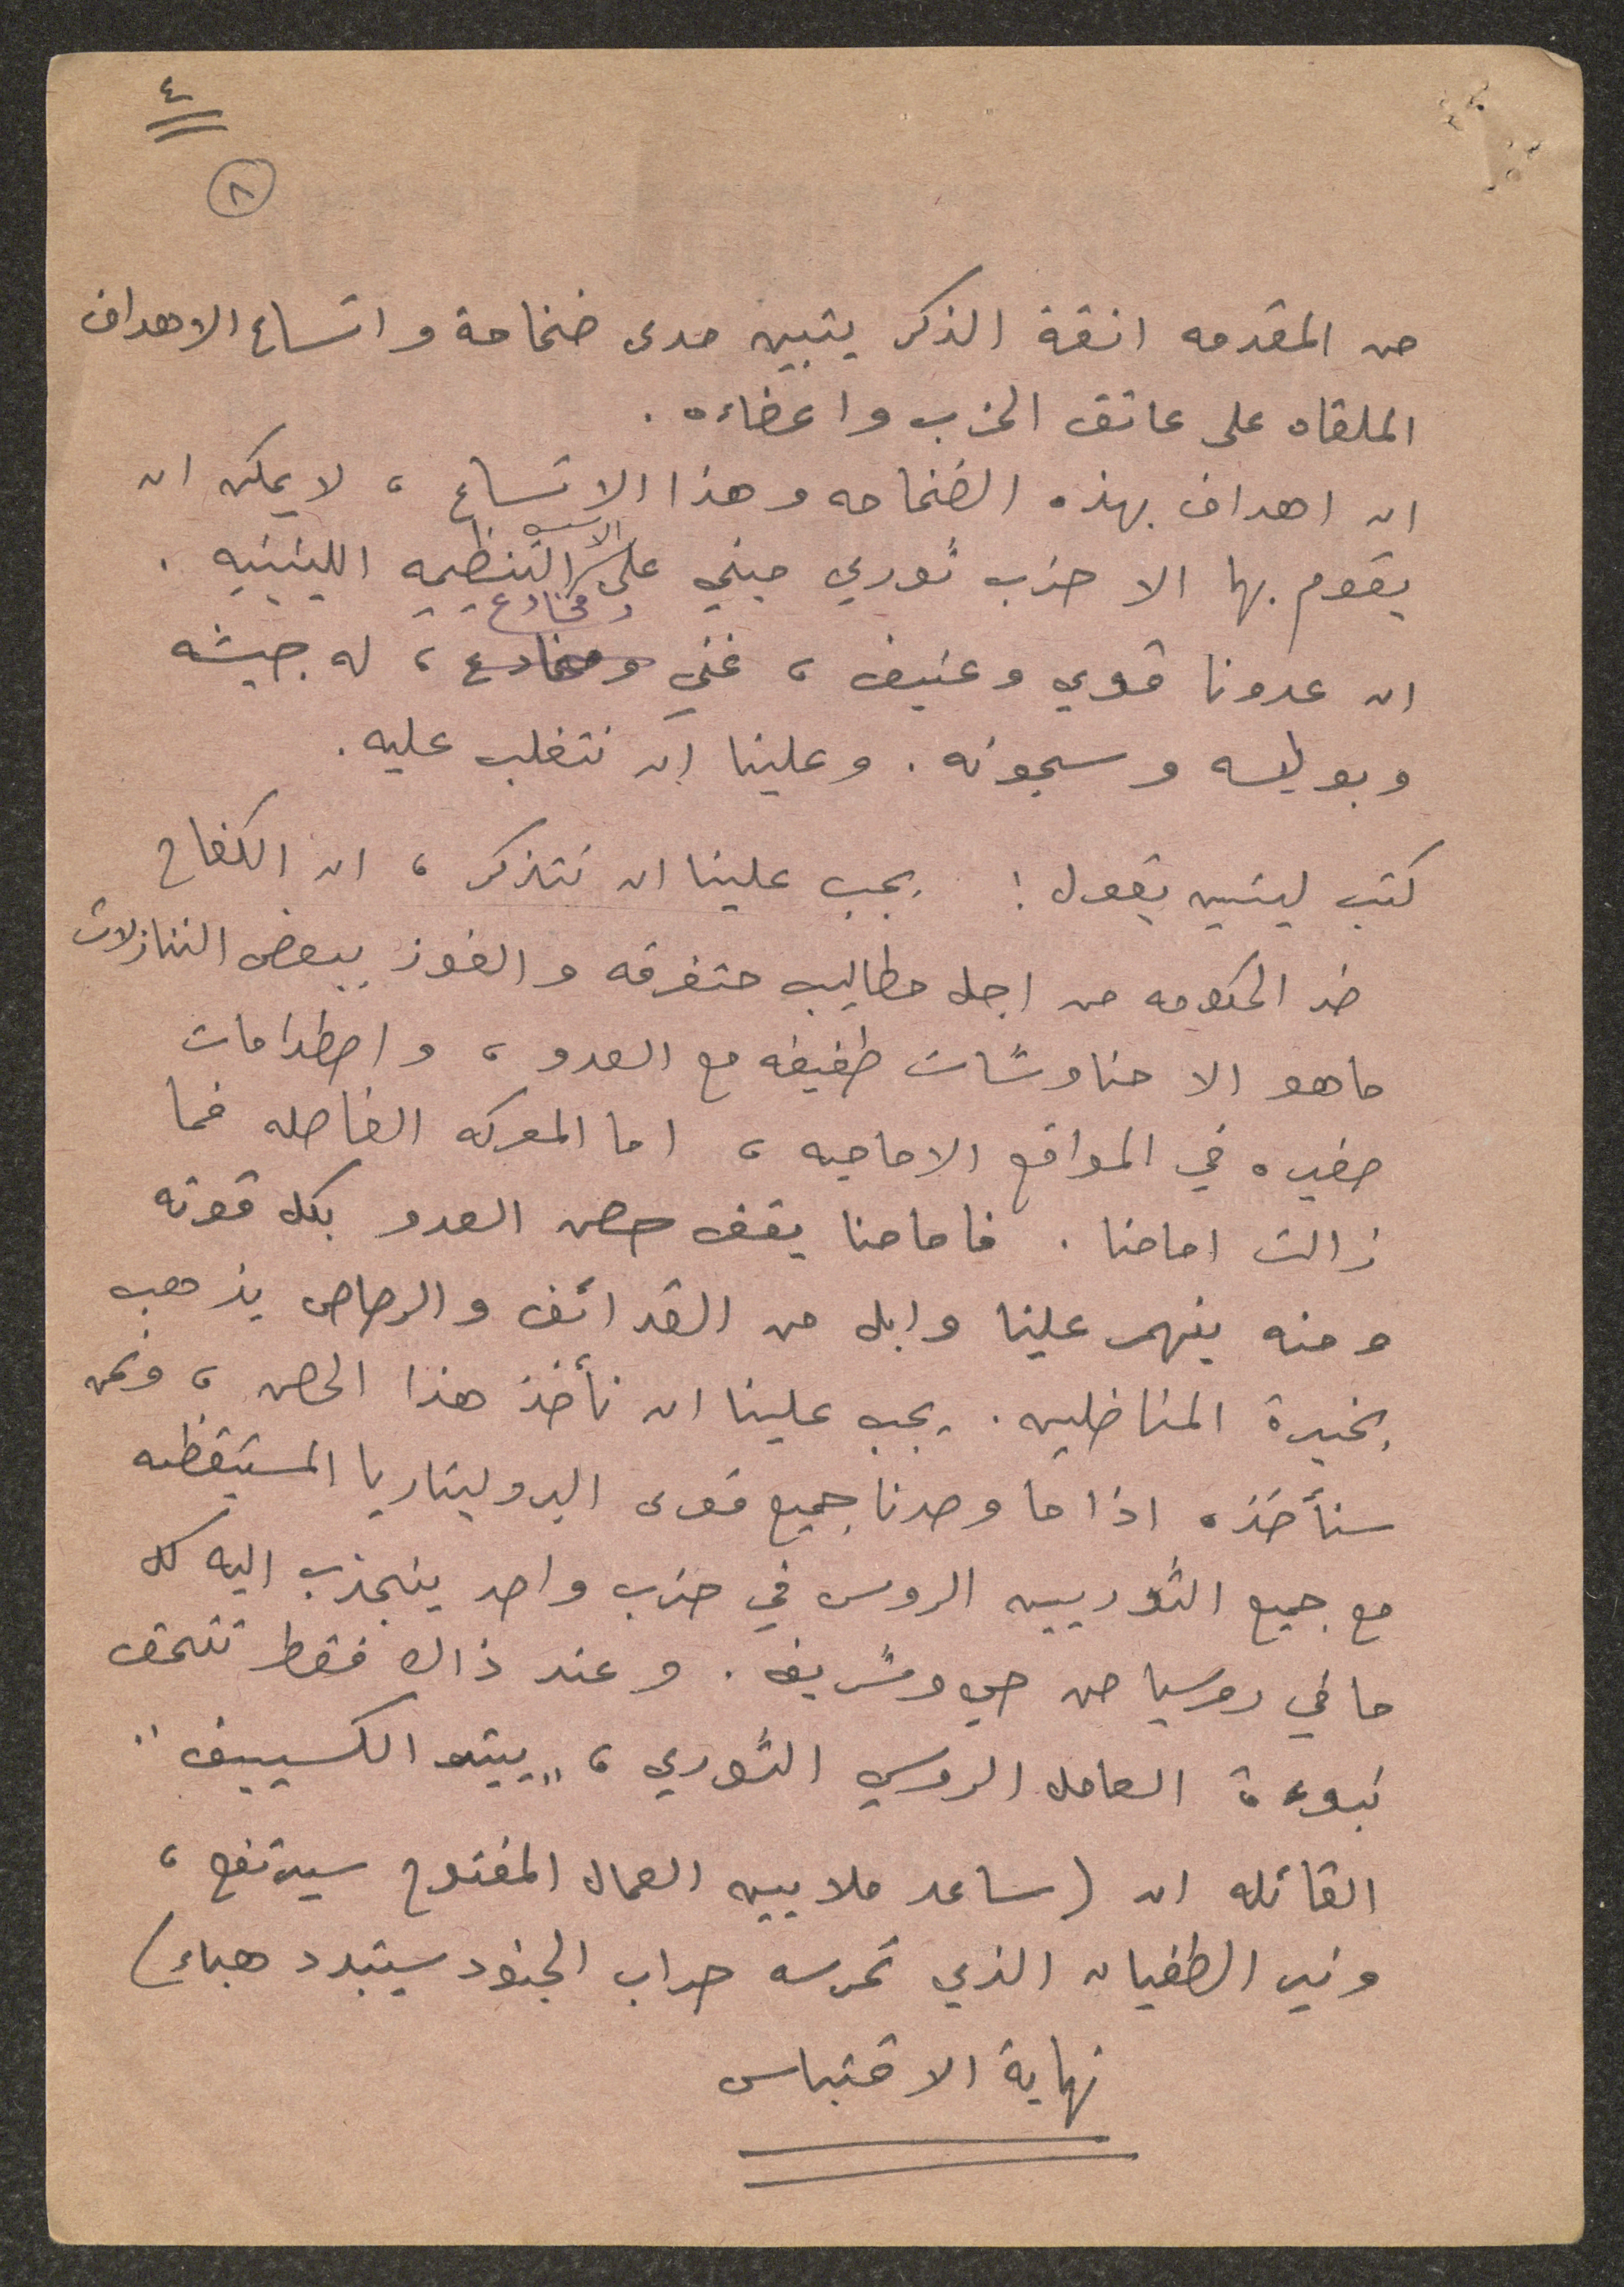 ٤
٨
من المقدمه انقة الذكر يتبين مدى ضخامة واتساع الاهداف
الملقاه على عاتق الحزب واعضاءه .
ان اهداف بهذه الضخامه وهذا الاتساع ، لا يمكن ان
يقوم بها الا حزب ثوري مبني على الاسس التنظيميه اللينينيه .
ان عدونا قوي وعنيف ، غني ومخادع ، له جيشه
وبوليسه وسجونه . وعلينا ان نتغلب عليه .
كتب لينين يقول : يجب علينا ان نتذكر ، ان الكفاح
ضد الحكومه من اجل مطاليب متفرقه والفوز ببعض التنازلات
ما هو الا مناوشات طفيفه مع العدو ، واصطدامات
صغيره في المواقع الاماميه ، اما المعركه الفاصله فما
زالت امامنا . فامامنا يقف حصن العدو بكل قوته
ومنه ينهمر علينا وابل من القدائف والرصاص يذهب
بخيرة المناضلين . يجب علينا ان نأخذ هذا الحصن ، ونحن
سنأخذه اذا ما وحدنا جميع قوى البروليتاريا المستيقظه
مع جميع الثوريين الروس في حزب واحد ينجذب اليه كل
ما في روسيا من حي وشريف . وعند ذاك فقط تتحقق
نبوءة العامل الروسي الثوري ، "بيتر الكسييف"
القائله ان (ساعد ملايين العمال المفتوح سيرتفع ،
ونير الطغيان الذي تحرسه حراب الجنود سيتبدد هباء)
نهاية الاقتباس